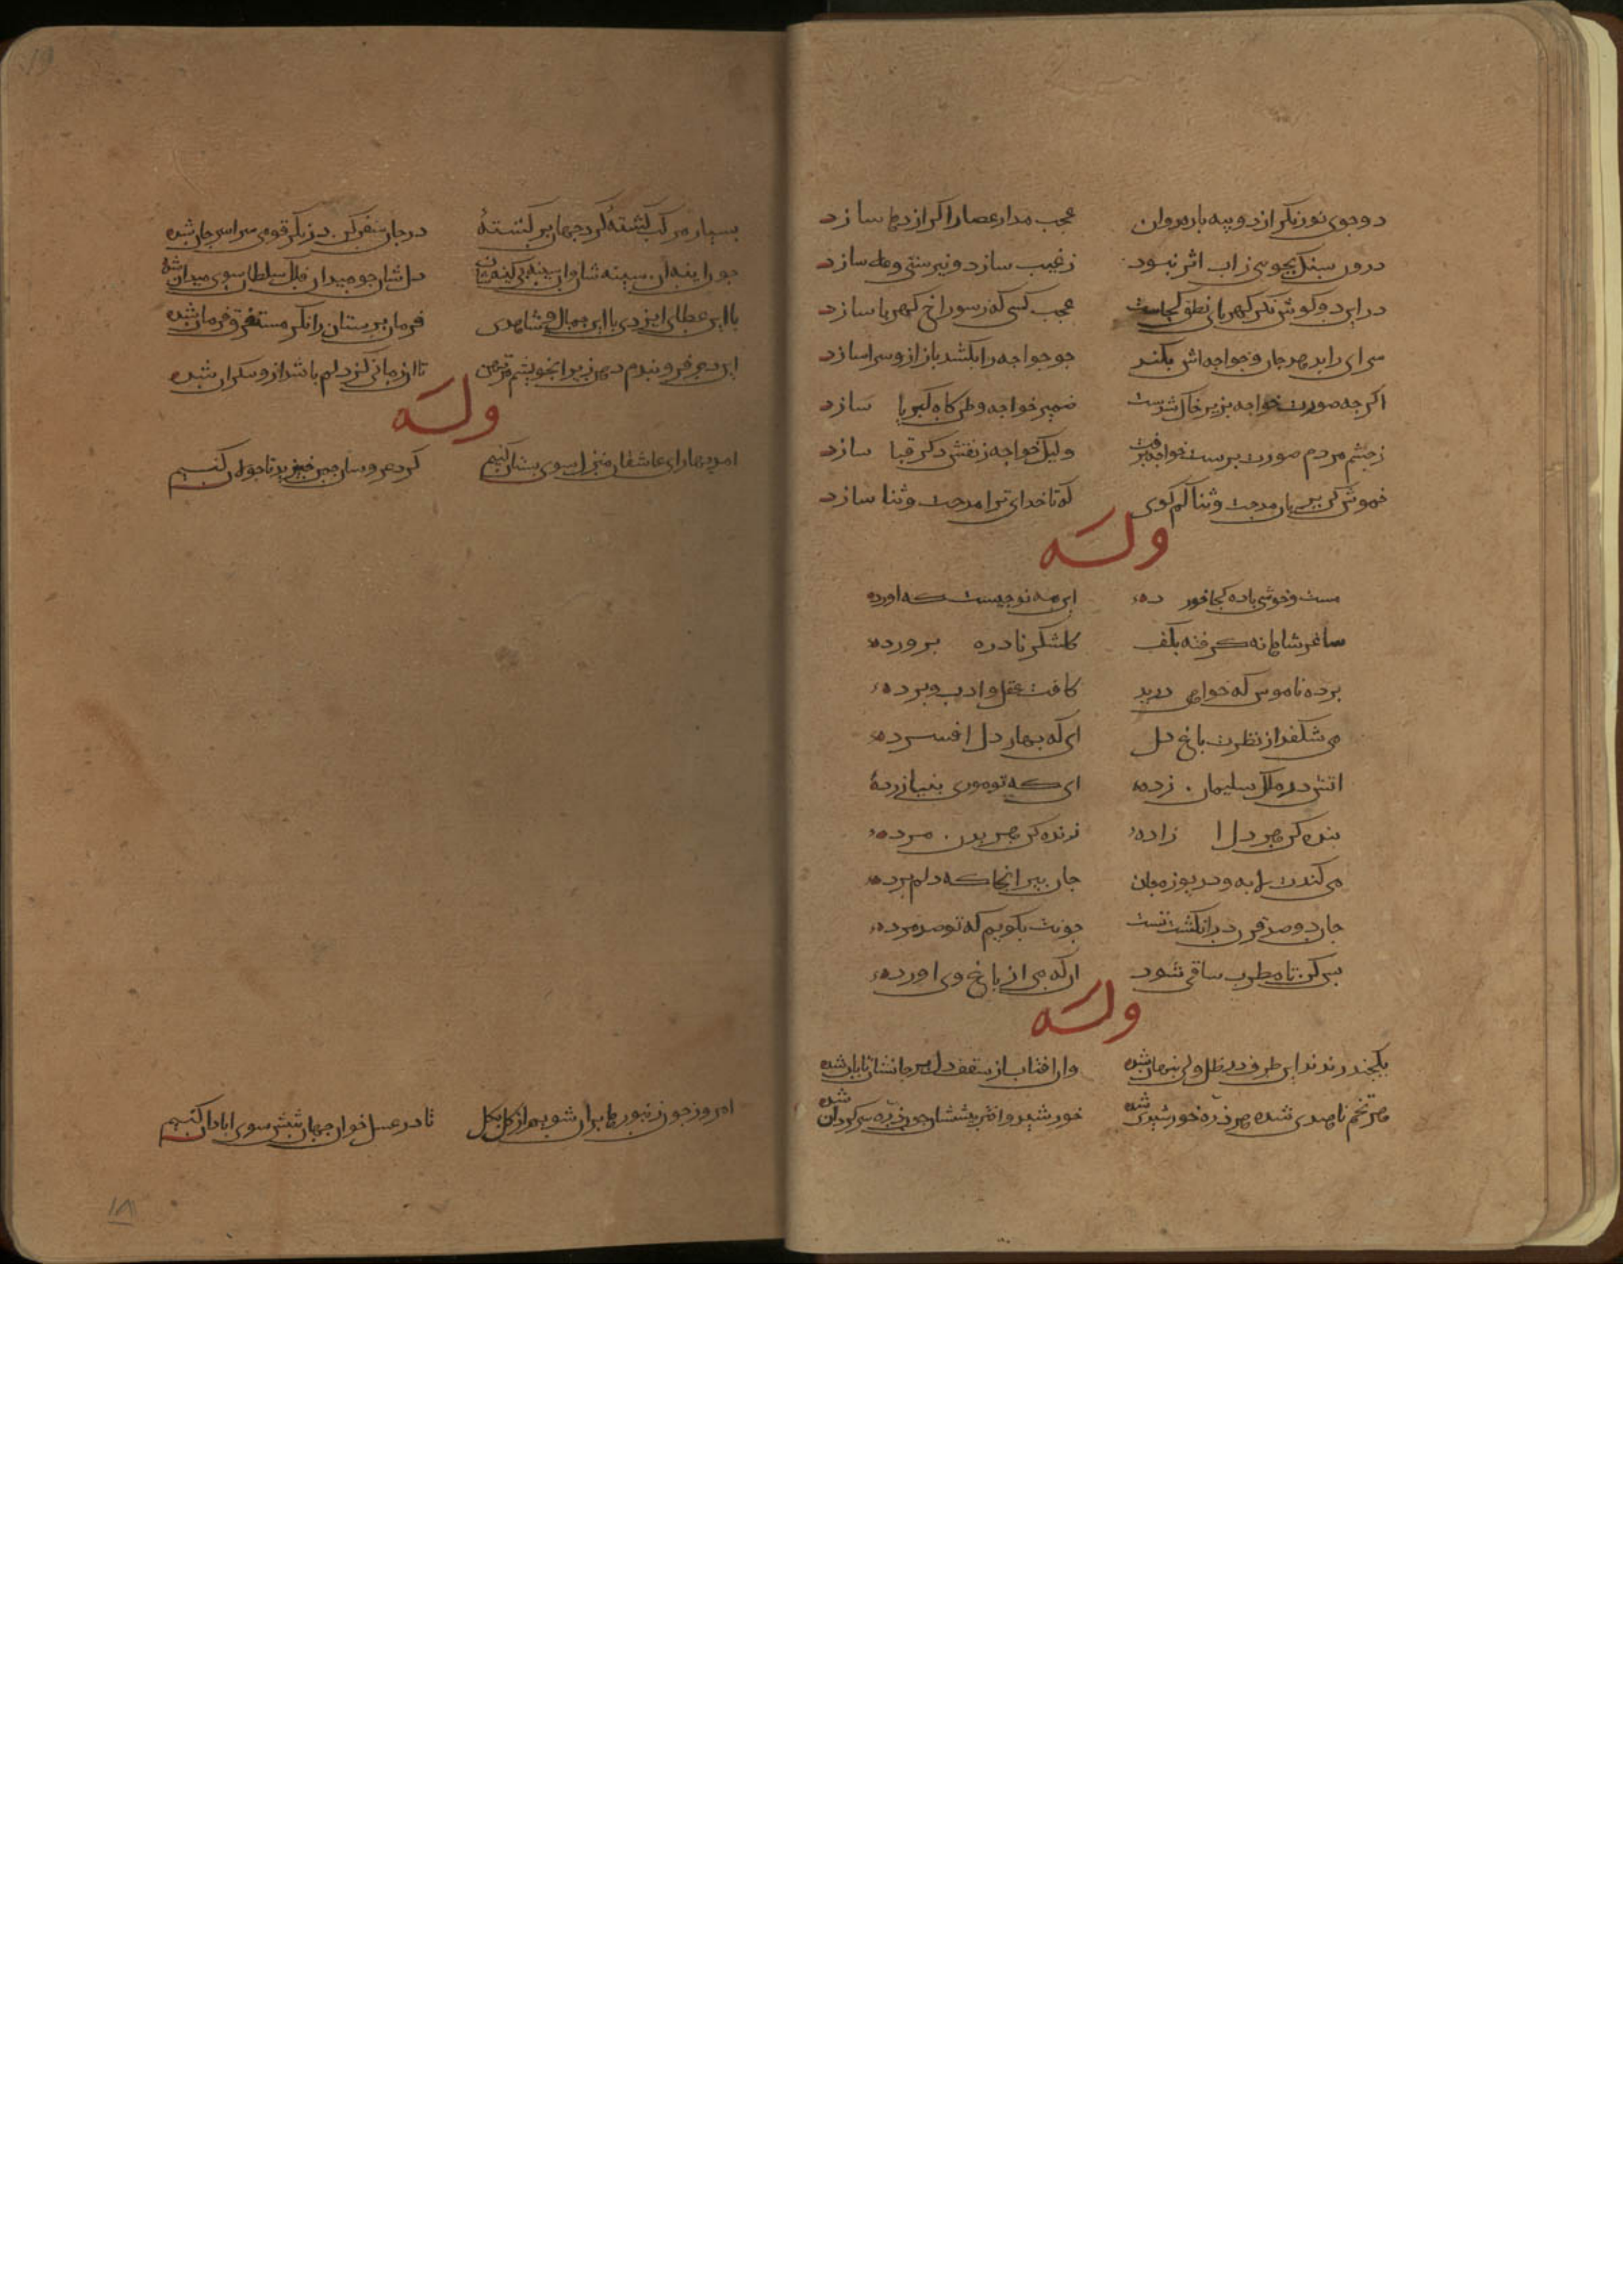 دو جوی نور نگر از دو پیه پاره روان عجب مدار عصا را اگر اژدها سازد
درون سنک بجوی ز اب اثر نبود ز غیب سازد و نی پستی و علا سازد
در این دو کوش نکر کهربای نطق کجاست عجب کسی که ز سوراخ کهربا سازد
سرای را بدهد جان و خواجه اش بکند جو خواجه را بکشد باز ازو سرا سازد
اکر جه صورت خواجه بزیر خاک شدست ضمیر خواجه وطن کاه کبریا سازد
ز جشم مردم صورت برست خواجه برفت ولیک خواجه ز نقش دکر قبا سازد
خموش کن بزبان مدحت و ثنا کم کوی که تا خدای ترا مدحت و ثنا سازد
وله
مست و خوشی باده کجا خورده این مه نو جیست که اورده
ساغر شاهانه کرفته بکف کلشکر نادره برورده
برده ناموس که خواهی درید کافت عقل و ادب و برده
می شکفد از نظرت باغ دل ای که بهار دل افسرده
اتش در ملک سلیمان زده ای که تو موری بنیازرده
بنده کن هر دل ازاده زنده کن هر بدن مرده
می کندت لابه و دریوزه جان جان ببر انجا که دلم برده
جان دو صد قرن در انکشت تست جونت بکویم که تو صد مرده
بس کن تا مطرب ساقی شود ان که می از باغ وی اورده
وله
یکجند رندند این طرف در ظل دل بنهان شده وان افتاب از سقف دل بر جانشان تابان شده
هر نجم ناهیدی شده هر ذره خورشیدی شده خورشید و اختر بیششان جون ذره سرکردان شده
بسیار مرکب کشتهٔ کرد جهان بر کشتهٔ در جان سفر کن در نکر قومی سراسر جان شده
جون اینه ان سینه شان ان سینه بی کینه شان دلشان جو میدان فلک سلطان سوی میدان شده
با این عطای ایزدی با این جمال و شاهدی فرمان برستان را نکر مستغرق فرمان شده
وله
امد بهار ای عاشقان منزل سوی بستان کنیم کرد عروسان جمن خیزید تا جولان کنیم
امروز جون زنبورها بران شویم از کل بکل تا در عسل خوان جهان شش سو ابادان کنیم
۱۸